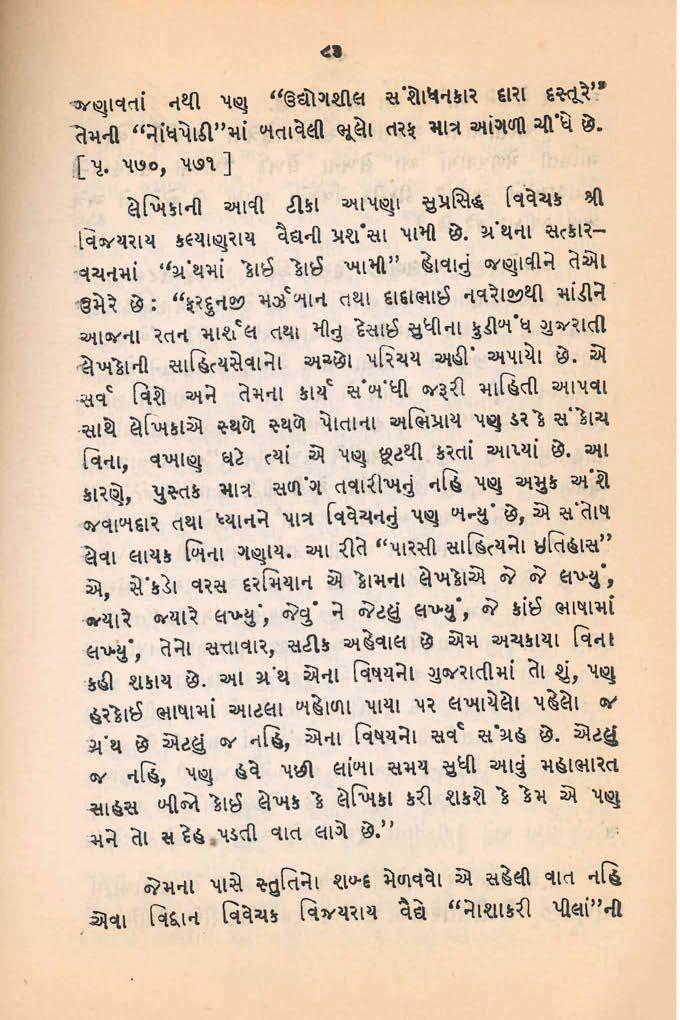 ૮૩
જણાવતાં નથી પણ “ઉદ્યોગશીલ સંશોધનકાર દ્વારા દસ્તૂરે”
તેમની “નોંધપોઠી”માં બતાવેલી ભૂલો તરફ માત્ર આંગળી ચીંધે છે.
[ પૃ. ૫૭૦, ૫૭૧ ]
લેખિકાની આવી ટીકા આપણા સુપ્રસિદ્ધ વિવેચક શ્રી
વિજયરાય કલ્યાણરાય વૈદ્યની પ્રશંસા પામી છે. ગ્રંથના સત્કાર–
વચનમાં “ગ્રંથમાં કોઈ કોઈ ખામી” હોવાનું જણાવીને તેઓ
ઉમેરે છે : “ફરદુનજી મર્ઝબાન તથા દાદાભાઈ નવરોજીથી માંડીને
આજના રતન માર્શલ તથા મીનુ દેસાઈ સુધીના કુડીબંધ ગુજરાતી
લેખકોની સાહિત્યસેવાનો અચ્છો પરિચય અહીં અપાયો છે. એ
સર્વ વિશે અને તેમના કાર્ય સંબંધી જરૂરી માહિતી આપવા
સાથે લેખિકાએ સ્થળે સ્થળે પોતાના અભિપ્રાય પણ ડર કે સંકોચ
વિના, વખાણ ઘટે ત્યાં એ પણ છૂટથી કરતાં આપ્યાં છે. આ
કારણે, પુસ્તક માત્ર સળંગ તવારીખનું નહિ પણ અમુક અંશે
જવાબદાર તથા ધ્યાનને પાત્ર વિવેચનનું પણ બન્યું છે, એ સંતોષ
લેવા લાયક બિના ગણાય. આ રીતે “પારસી સાહિત્યનો ઇતિહાસ”
એ, સેંકડો વરસ દરમિયાન એ કોમના લેખકોએ જે જે લખ્યું,
જ્યારે જ્યારે લખ્યું, જેવું ને જેટલું લખ્યું, જે કાંઈ ભાષામાં
લખ્યું, તેનો સત્તાવાર, સટીક અહેવાલ છે એમ અચકાયા વિના
કહી શકાય છે. આ ગ્રંથ એના વિષયનો ગુજરાતીમાં તો શું, પણ
હરકોઈ ભાષામાં આટલા બહોળા પાયા પર લખાયેલો પહેલો જ
ગ્રંથ છે એટલું જ નહિ, એના વિષયનો સર્વ સંગ્રહ છે. એટલું
જ નહિ, પણ હવે પછી લાંબા સમય સુધી આવું મહાભારત
સાહસ બીજો કોઈ લેખક કે લેખિકા કરી શકશે કે કેમ એ પણ
મને તો સંદેહ પડતી વાત લાગે છે.”
જેમના પાસે સ્તુતિનો શબ્દ મેળવવો એ સહેલી વાત નહિ
એવા વિદ્વાન વિવેચક વિજયરાય વૈદ્યે “નોશાકરી પીલાં”ની